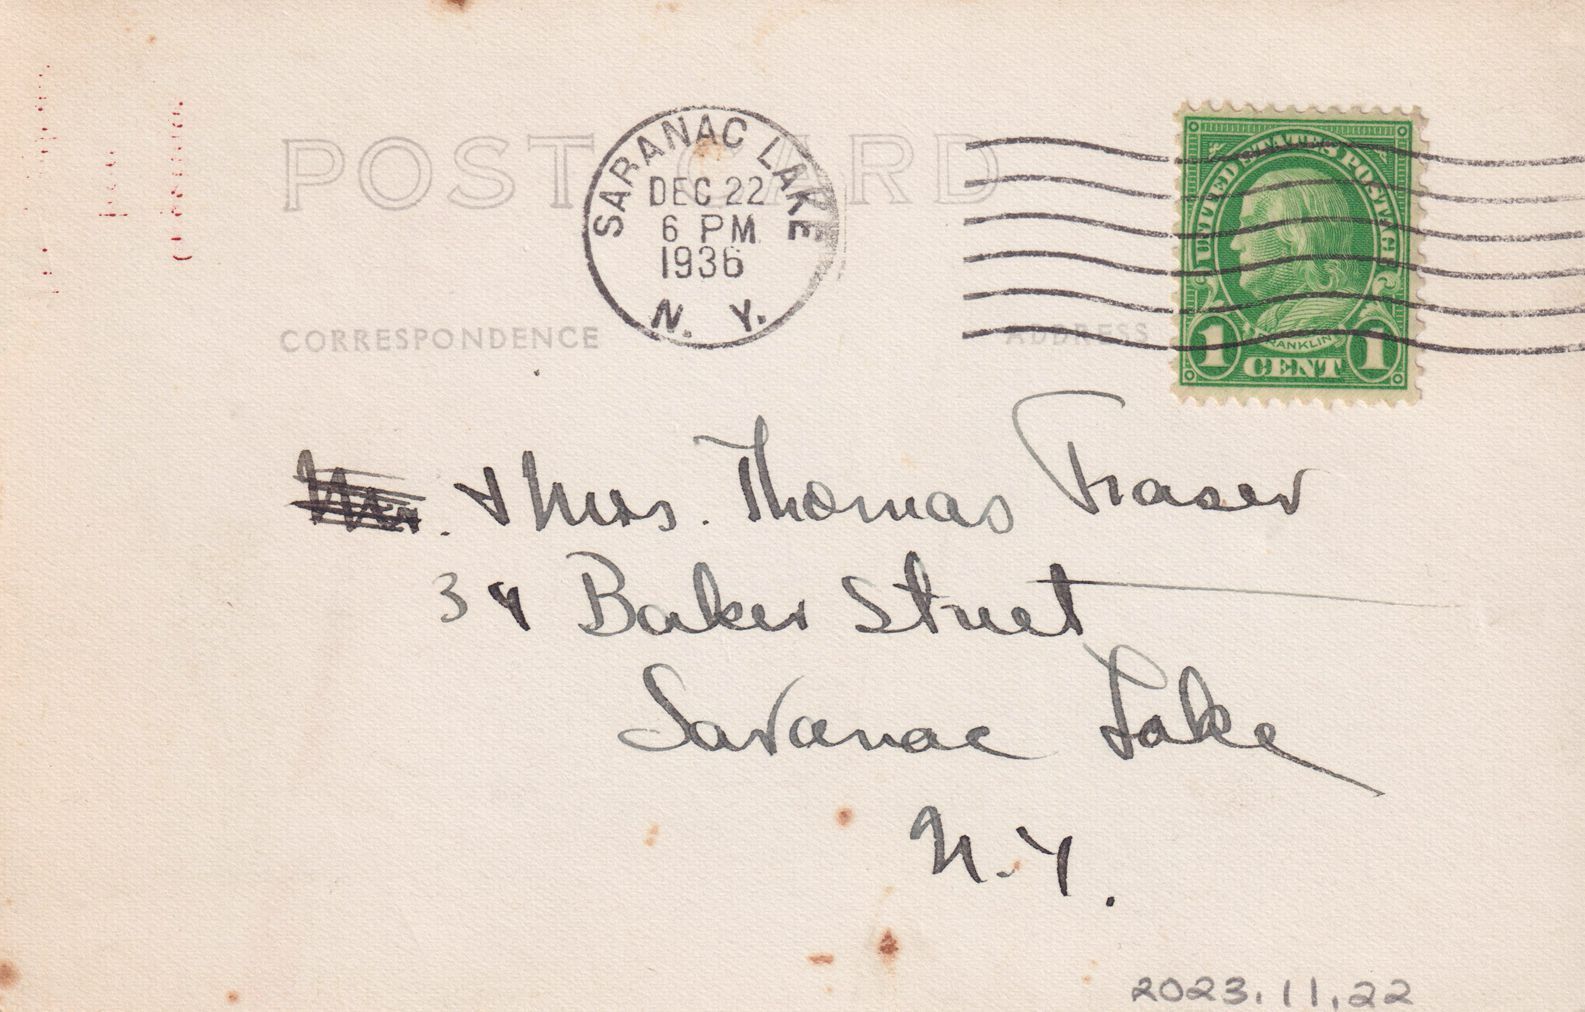 POST CARD
SARANAC LAKE
DEC 22
6 PM
1936
N. Y.
UNITED STATES POSTAGE
FRANKLIN
1 CENT 1
CORRESPONDENCE
ADDRESS
& Mrs. Thomas Fraser
34 Baker Street
Saranac Lake
N.Y.
2023.11.22